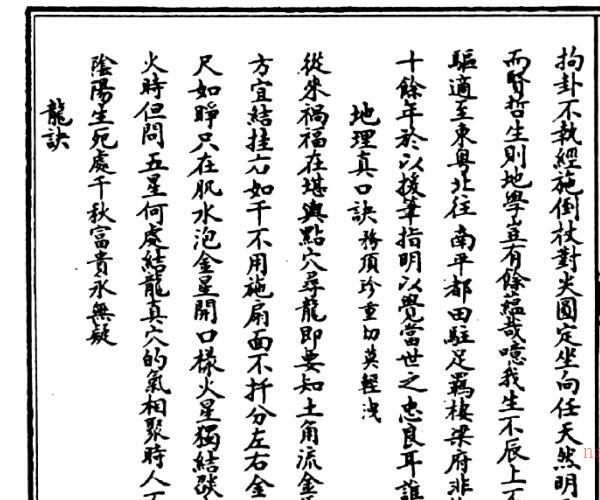 拘卦不執經施倒杖對尖圓定坐向任天然明
而賢哲生則地學豈有餘蘊哉噫我生不辰上不
驅適至東粵北往南平都田駐足羈棲梁府非
十餘年於以援筆指明以覺當世之忠良耳誰
地理真口訣 務須珍重切莫輕洩
從來禍福在堪輿點穴尋龍即要知土角流金
方宜結挂穴如干不用施扇面不扦分左右金
尺如睜只在肌水泡金星開口樣火星獨結燄
火時但問五星何處結龍真穴的氣相聚時人不
陰陽生死處千秋富貴永無疑
龍訣